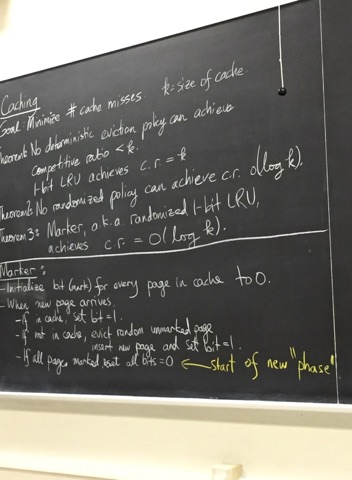 Caching
Goal: Minimize # cache misses. k = size of cache.
Theorem 1: No deterministic eviction policy can achieve
competitive ratio < k.
1-bit LRU achieves c.r. = k
Theorem 2: No randomized policy can achieve c.r. o(log k).
Theorem 3: Marker, a.k.a. randomized 1-bit LRU,
achieves c.r. = O(log k).
Marker:
- Initialize bit (mark) for every page in cache to 0.
- When new page arrives,
- If in cache, set bit = 1.
- If not in cache, evict random unmarked page
insert new page and set bit = 1.
- If all pages marked reset all bits = 0 ← start of new "phase"